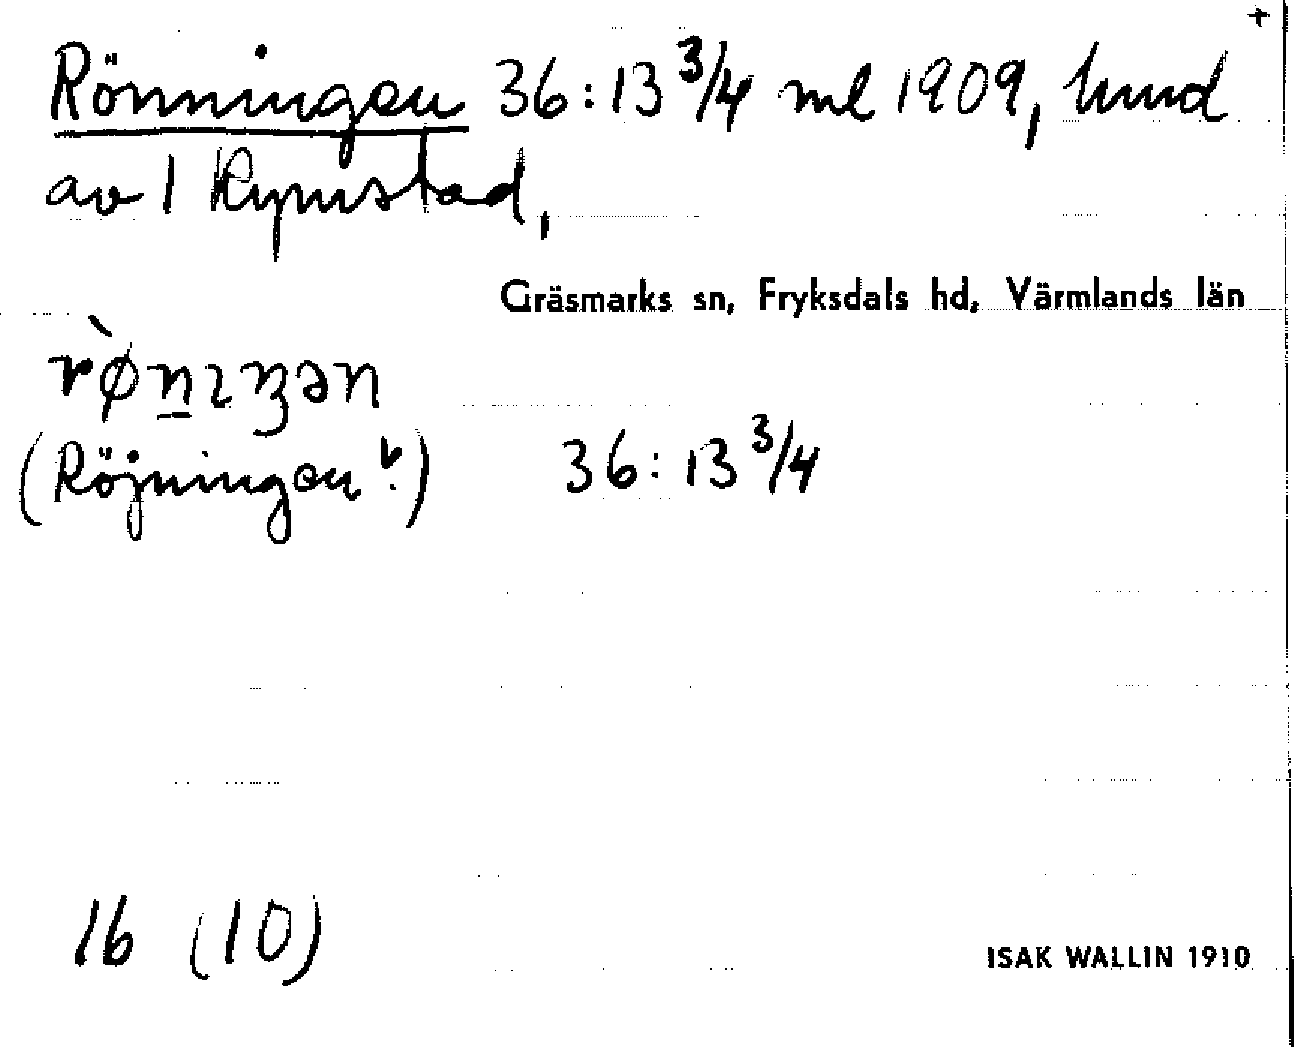 +
Rönningen 36:13 3/4 ml 1909, hmd
av 1 Rymstad,
Gräsmarks sn, Fryksdals hd, Värmlands län
(Röjningen ?) 36:13 3/4
16 (10)
ISAK WALLIN 1910